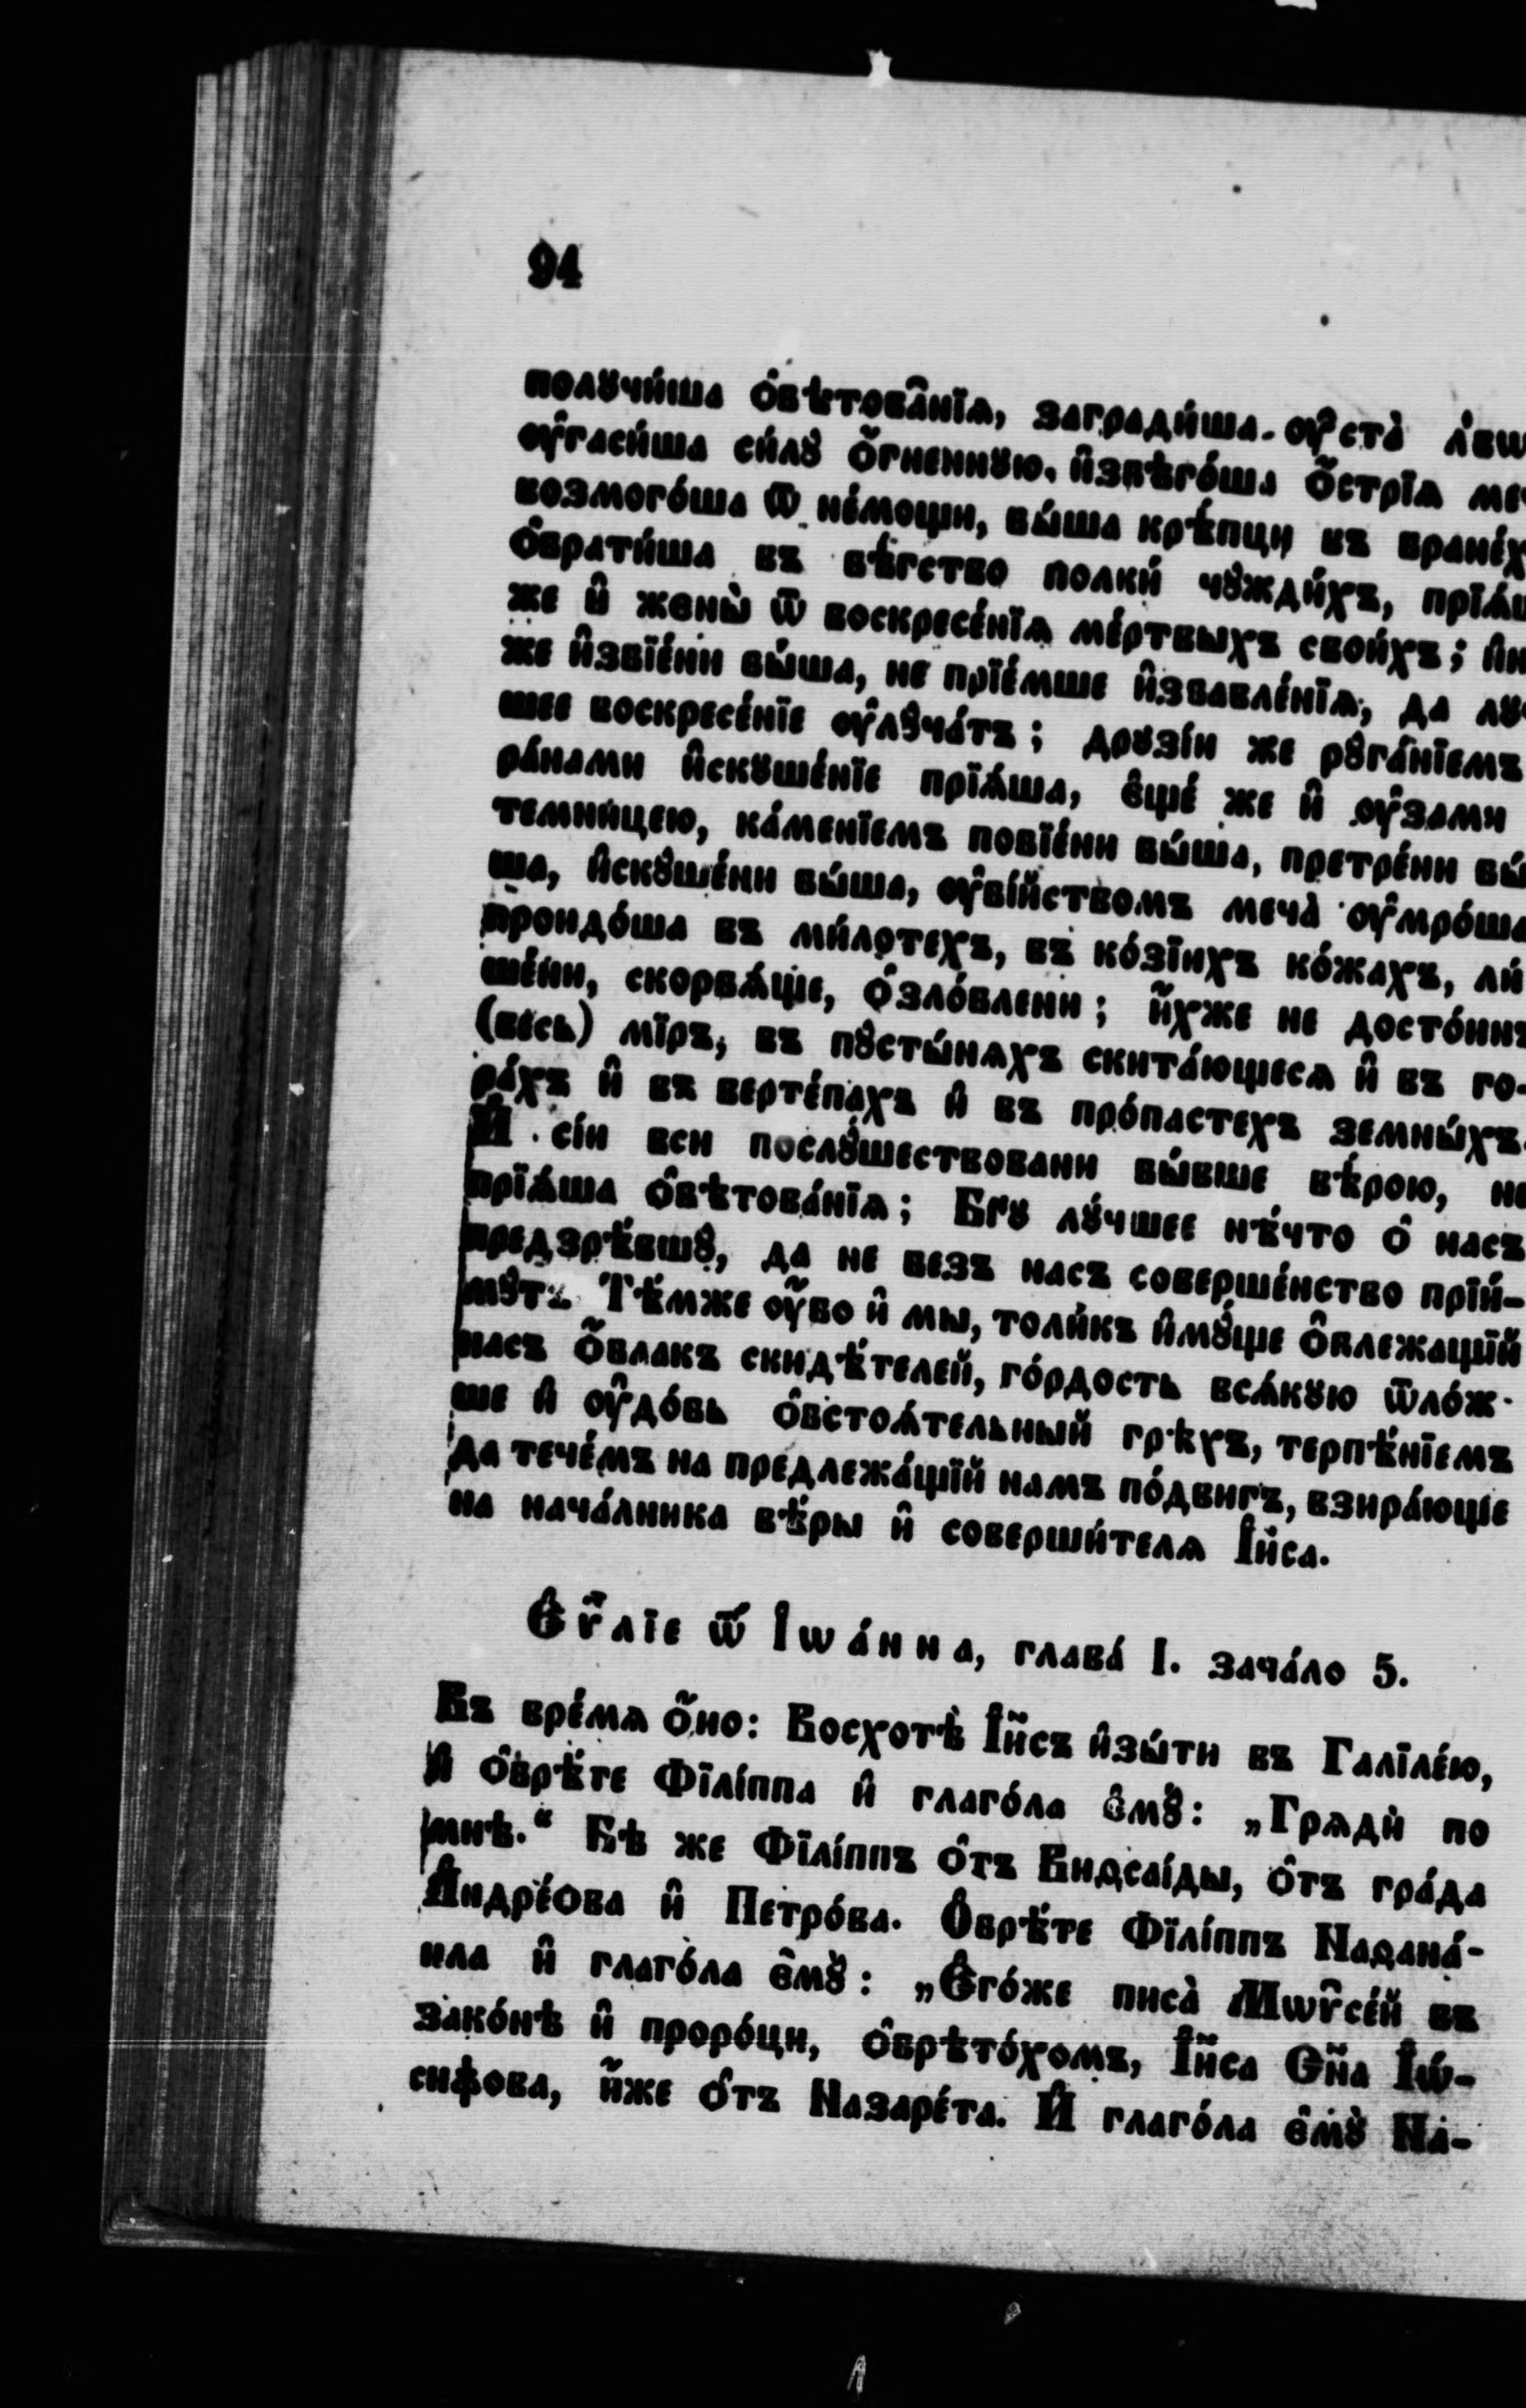 94
полꙋчи́ша ѻ҆бѣтова̑нїѧ, загради́ша ѹ҆ста̀
ѹ҆гаси́ша си́лꙋ ѻ҆́гненнꙋю, и҆збѣго́ша ѻ҆́стрїѧ
возмого́ша ѿ не́мощи, бы́ша крѣ́пцы въ
ѻ҆брати́ша въ бѣ́гство полки́ чꙋжди́хъ,
же и҆ жены̀ ѿ воскресе́нїѧ ме́ртвыхъ свои́хъ;
же и҆збїе́ни бы́ша, не прїе́мше и҆збавле́нїѧ, да
шее воскресе́нїе ѹ҆лꙋча́тъ; дрꙋзі́и же рꙋга́нїемъ
ра́нами и҆скꙋше́нїе прїѧ́ша, є҆ще́ же и҆ ѹ҆зами
темни́цею, ка́менїемъ побїе́ни бы́ша, претре́ни бы́
ша, и҆скꙋше́ни бы́ша, ѹ҆бі́йствомъ меча̀ ѹ҆мро́ша
проидо́ша въ ми́лотехъ, въ ко́зїихъ ко́жахъ, ли́
ше́ни, скорбѧ́ще, ѻ҆зло́блени; и҆́хже не досто́инъ
(ве́сь) мїръ, въ пꙋсты́нѧхъ скита́ющесѧ и҆ въ го-
ра́хъ и҆ въ верте́пахъ и҆ въ про́пастехъ земны́хъ.
И҆ сі́и вси послꙋ́шествовани бы́вше вѣ́рою, не
прїѧ́ша ѻ҆бѣтова́нїѧ; Бг҃ꙋ лꙋ́чшее нѣ́что ѻ҆ насъ
предзрѣ́вшꙋ, да не безъ насъ соверше́нство прїи́-
мꙋтъ. Тѣ́мже ѹ҆́бо и҆ мы, толи́къ и҆мꙋ́ще ѻ҆блежащїй
насъ ѻ҆́блакъ свидѣ́телей, го́рдость всѧ́кꙋю ѿло́ж-
ше и҆ ѹ҆до́бь ѻ҆бстоѧ́тельный грѣхъ, терпѣ́нїемъ
да тече́мъ на предлежа́щїй намъ по́двигъ, взира́юще
на нача́лника вѣ́ры и҆ соверши́телѧ І҆и҃са.
Є҆ѵ҃лїе ѿ І҆ѡа́нна, глава́ I. зача́ло 5.
Въ вре́мѧ ѻ҆́но: Восхотѣ̀ І҆и҃съ и҆зы́ти въ Галїле́ю,
и҆ ѻ҆брѣ́те Фїлі́ппа и҆ глаго́ла є҆мꙋ̀: „Грѧдѝ по
мнѣ.“ Бѣ же Фїлі́ппъ ѻ҆тъ Виѳсаі́ды, ѻ҆тъ гра́да
А҆ндре́ова и҆ Петро́ва. Ѻ҆брѣ́те Фїлі́ппъ Наѳана́-
ила и҆ глаго́ла є҆мꙋ̀: „Є҆го́же писа̀ Мѡѷсе́й въ
зако́нѣ и҆ проро́цы, ѻ҆брѣто́хомъ, І҆и҃са Сн҃а І҆ѡ́-
сифова, и҆́же ѻ҆тъ Назаре́та. И҆ глаго́ла є҆мꙋ̀ На-